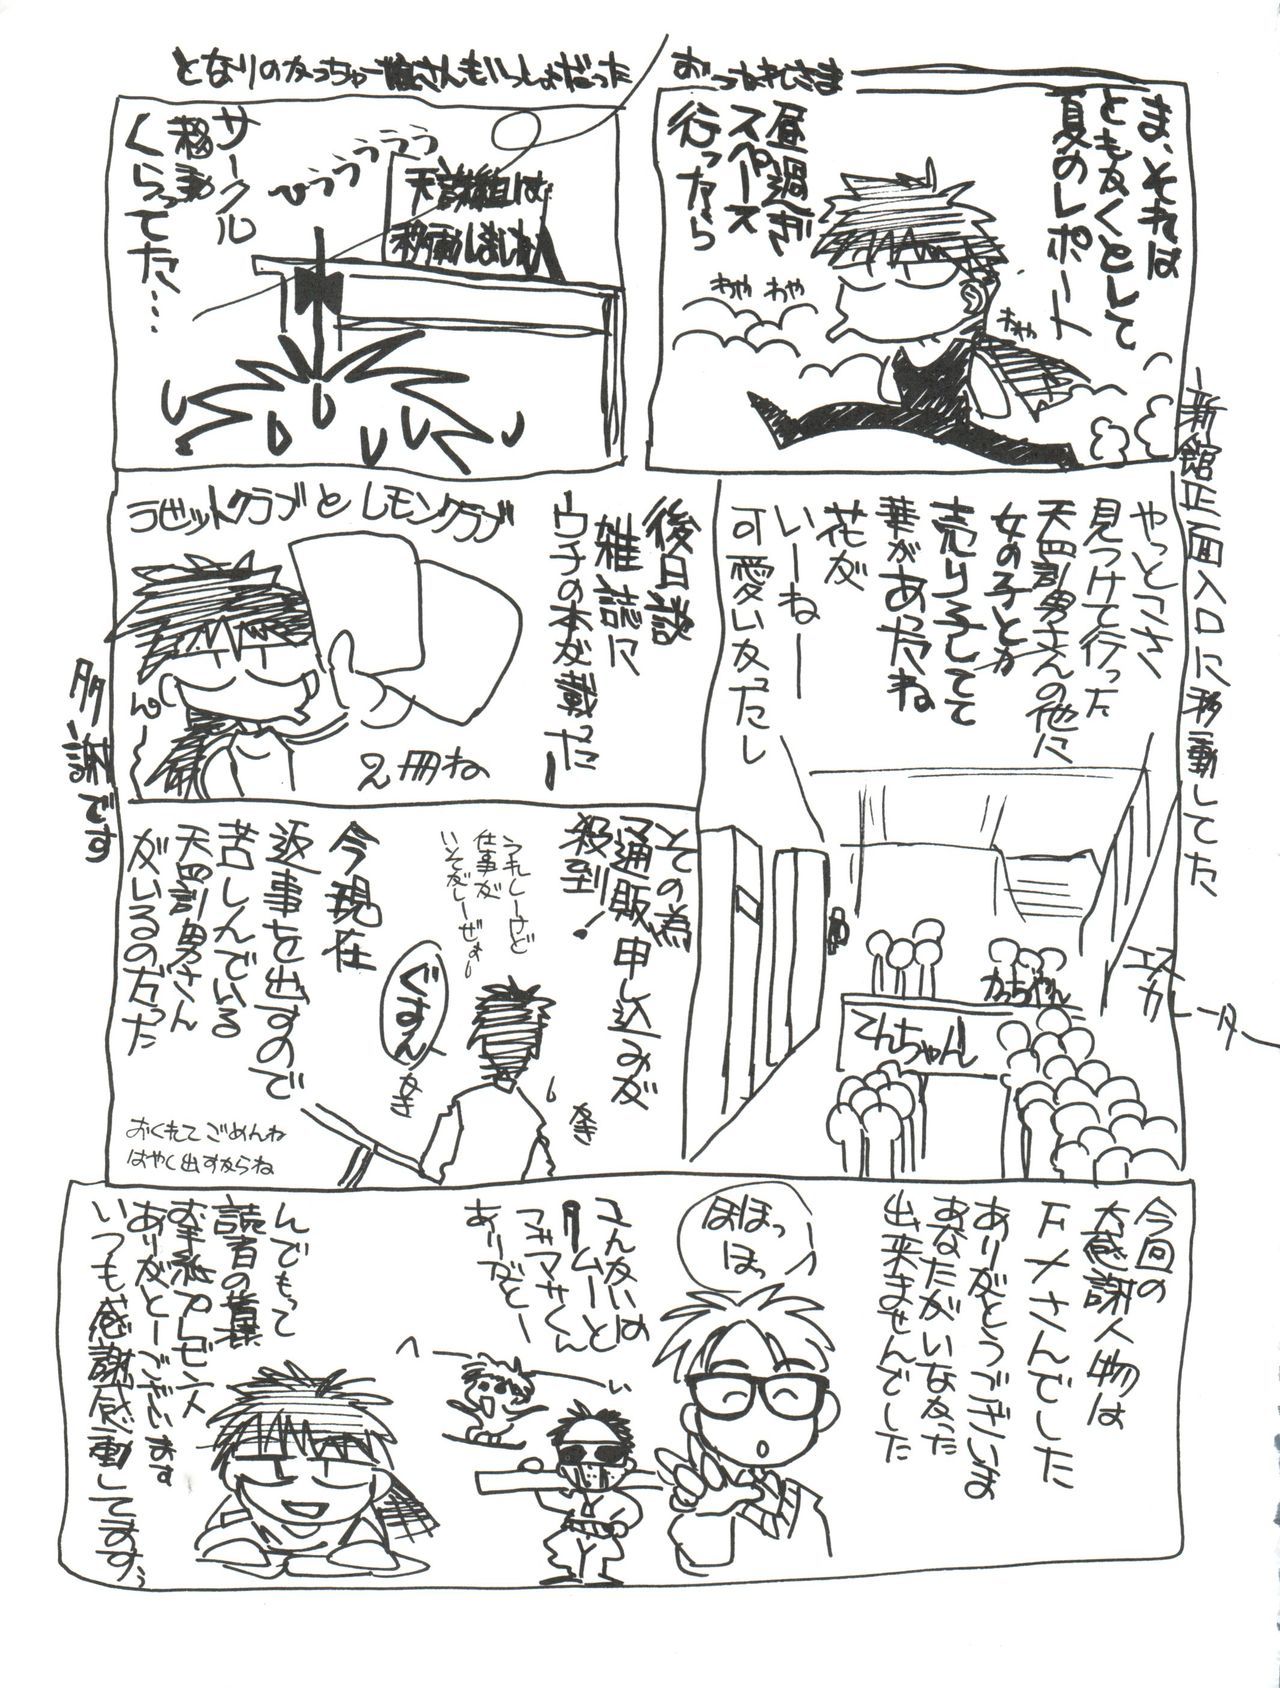 おつかれさま
ま、それは
ともかくとして
夏のレポート
昼過ぎ
スペース
行ったら
わやわや
わや
サークル
移動
くらってた…
ひううううう
移動しました
新館正面入口に移動してた
やっとこさ
見つけて行った
天四訓男さんの他に
女の子とか
売り子してて
華があったね
花が
いーねー
可愛いかったし
かっちゃん
てんちゃん
エスカレーター
後日談
雑誌に
ウチの本が載った
ラビットクラブとレモンクラブ
ん〜
2冊ね
多謝です
その為
通販申し込みが
殺到!
うれしーけど
仕事が
いそがしーぜぇ〜
ぐすん
今現在
返事を出すので
苦しんでいる
天四訓男さん
がいるのだった
おくれてごめんね
はやく出すからね
今回の
大感謝人物は
下メさんでした
ありがとうございま
あなたがいなかった
出来ませんでした
ほほっ
ほっ
あーがとー
んでもって
読者の葉
お手紙プレゼント
ありがとーございます
いつも感謝感動してますぅ